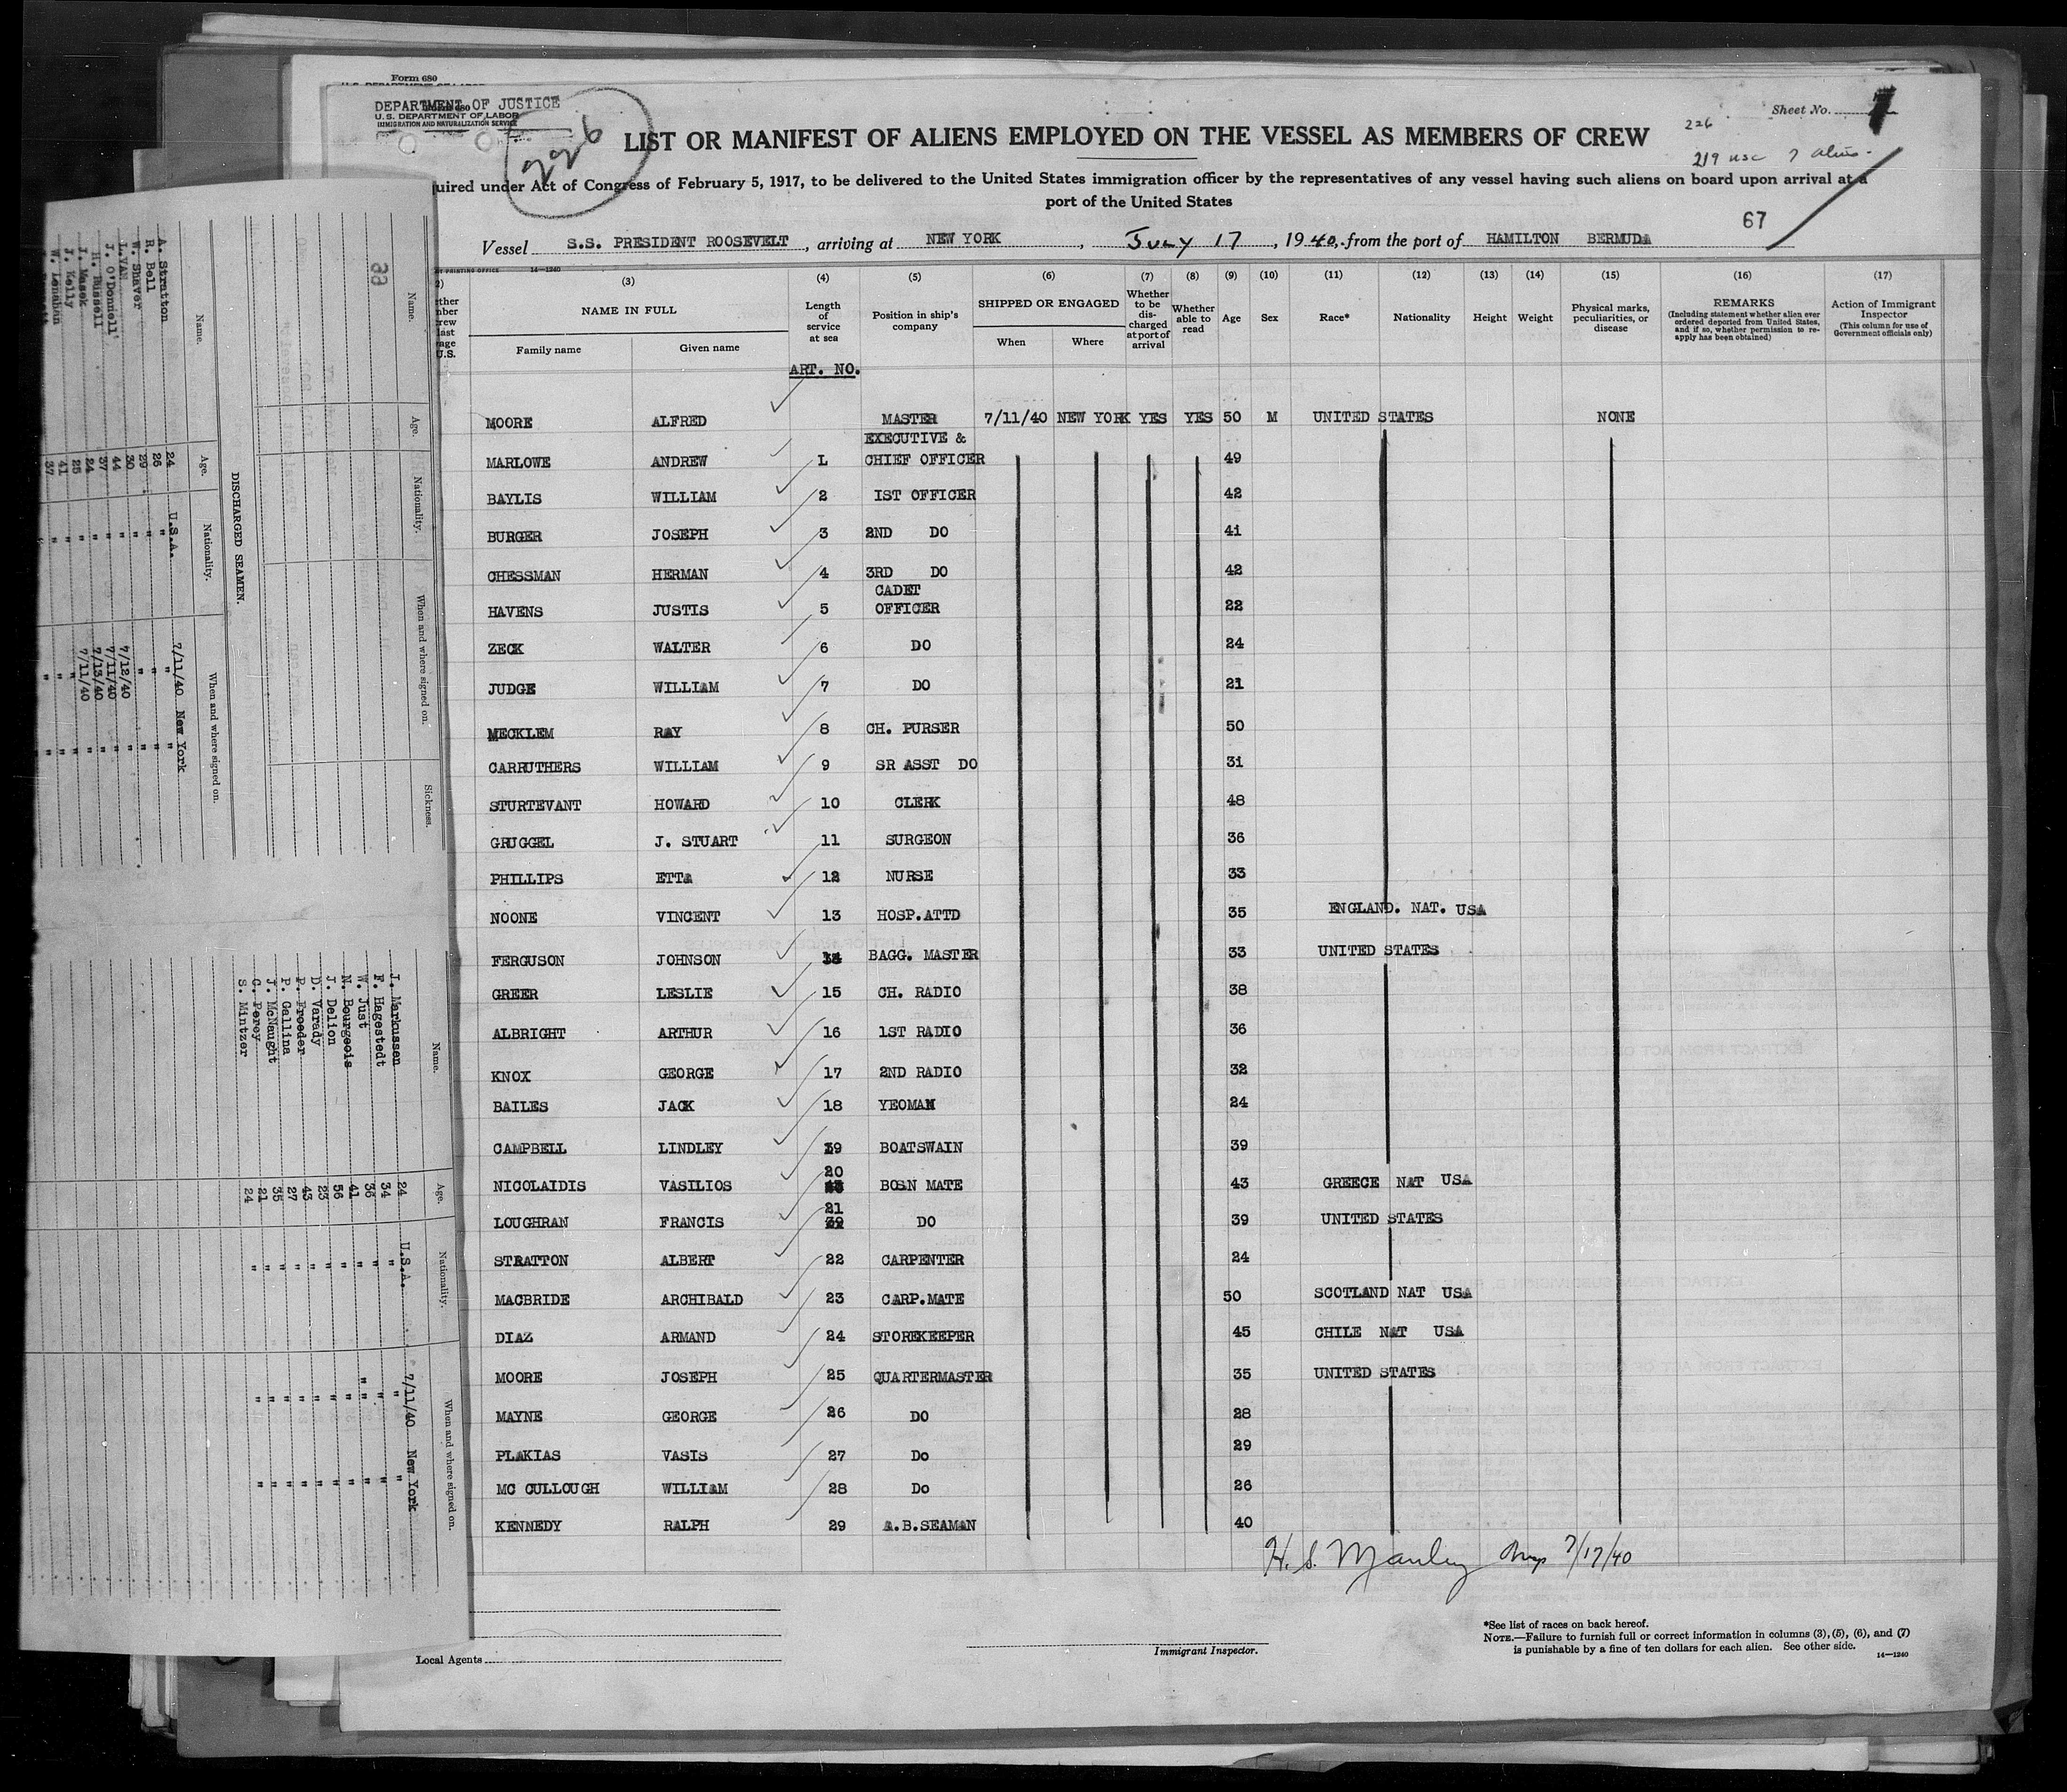 Form 680
DEPARTMENT OF JUSTICE
U. S. DEPARTMENT OF LABOR
IMMIGRATION AND NATURALIZATION SERVICE
226
Sheet No. 1
226
219 usc 7 aliens.
LIST OR MANIFEST OF ALIENS EMPLOYED ON THE VESSEL AS MEMBERS OF CREW
uired under Act of Congress of February 5, 1917, to be delivered to the United States immigration officer by the representatives of any vessel having such aliens on board upon arrival at a
port of the United States
67
Vessel S.S. PRESIDENT ROOSEVELT, arriving at NEW YORK, July 17, 1940, from the port of HAMILTON BERMUDA
14—1240
(3) (4) (5) (6) (7) (8) (9) (10) (11) (12) (13) (14) (15) (16) (17)
NAME IN FULL
Family name Given name
Length of service at sea
Position in ship's company
SHIPPED OR ENGAGED
When Where
Whether to be discharged at port of arrival
Whether able to read
Age Sex Race* Nationality Height Weight
Physical marks, peculiarities, or disease
REMARKS
(Including statement whether alien ever ordered deported from United States, and if so, whether permission to reapply has been obtained)
Action of Immigrant Inspector
(This column for use of Government officials only)
ART. NO.
MOORE ALFRED MASTER 7/11/40 NEW YORK YES YES 50 M UNITED STATES NONE
MARLOWE ANDREW L EXECUTIVE & CHIEF OFFICER 49
BAYLIS WILLIAM 2 IST OFFICER 42
BURGER JOSEPH 3 2ND DO 41
CHESSMAN HERMAN 4 3RD DO 42
HAVENS JUSTIS 5 CADET OFFICER 22
ZECK WALTER 6 DO 24
JUDGE WILLIAM 7 DO 21
MECKLEM RAY 8 CH. PURSER 50
CARRUTHERS WILLIAM 9 SR ASST DO 31
STURTEVANT HOWARD 10 CLERK 48
GRUGGEL J. STUART 11 SURGEON 36
PHILLIPS ETTA 12 NURSE 33
NOONE VINCENT 13 HOSP.ATTD 35 ENGLAND. NAT. USA
FERGUSON JOHNSON 14 BAGG. MASTER 33 UNITED STATES
GREER LESLIE 15 CH. RADIO 38
ALBRIGHT ARTHUR 16 1ST RADIO 36
KNOX GEORGE 17 2ND RADIO 32
BAILES JACK 18 YEOMAN 24
CAMPBELL LINDLEY 19 BOATSWAIN 39
NICOLAIDIS VASILIOS 20 BOSN MATE 43 GREECE NAT USA
LOUGHRAN FRANCIS 21 DO 39 UNITED STATES
STRATTON ALBERT 22 CARPENTER 24
MACBRIDE ARCHIBALD 23 CARP.MATE 50 SCOTLAND NAT USA
DIAZ ARMAND 24 STOREKEEPER 45 CHILE NAT USA
MOORE JOSEPH 25 QUARTERMASTER 35 UNITED STATES
MAYNE GEORGE 26 DO 28
PLAKIAS VASIS 27 Do 29
MC CULLOUGH WILLIAM 28 Do 26
KENNEDY RALPH 29 A.B.SEAMAN 40
H. S. Manley Insp 7/17/40
Local Agents
Immigrant Inspector.
*See list of races on back hereof.
NOTE.—Failure to furnish full or correct information in columns (3), (5), (6), and (7)
is punishable by a fine of ten dollars for each alien. See other side.
14—1240
Name. Age. Nationality. When and where signed on. Sickness.
DISCHARGED SEAMEN.
Name. Age. Nationality. When and where signed on.
A. Stratton 24 U.S.A. 7/11/40 New York
R. Bell 26 " " "
W. Shaver 29 " " "
L.VAN 30 " 7/12/40 "
J. O'Donnell 44 " 7/11/40 "
H. Russell 37 " 7/13/40 "
J. Masek 24 " 7/11/40 "
J. Kelly 25 " " "
W. Lenahon 41 " " "
37 " " "
Name. Age. Nationality. When and where signed on.
J. Markussen 24 U.S.A. 7/11/40 New York
F. Hagestedt 34 " " "
W. Just 36 " " "
N. Bourgeois 41 " " "
J. Delion 56 " " "
D. Varady 23 " " "
P. Froeder 43 " " "
P. Gallina 27 " " "
J. McNaught 35 " " "
C. Percy 21 " " "
S. Mintzer 24